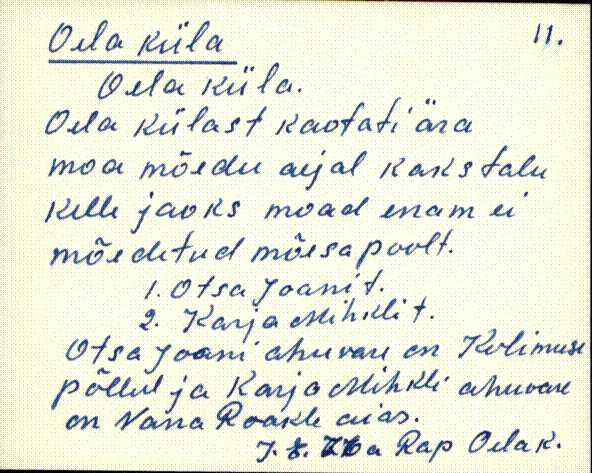 Oela küla 11.
Oela küla.
Oela külast kaotati ära
moa mõedu aejal kaks talu
kelle jaoks moad enam ei
mõedetud mõesa poolt.
1. Otsa Joanit.
2. Karja Mihklit.
Otsa Joani ahuvare on Kolimuse
põllul ja Karja Mihkli ahuvare
on Vana Roakle aias.
Rap Oela k.